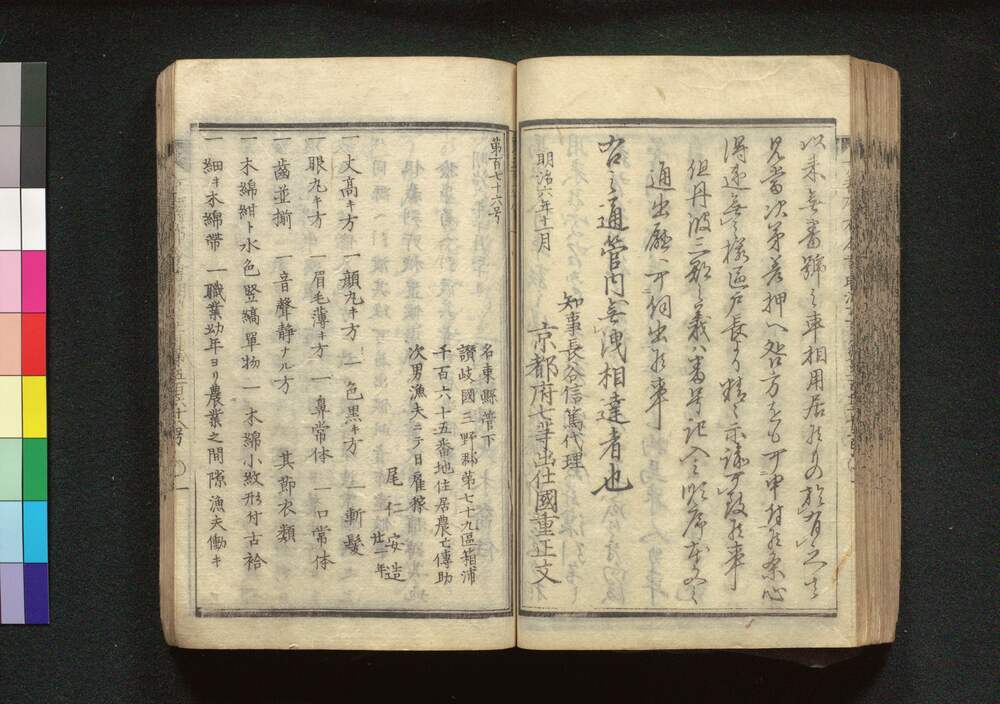 以来無番号之車相用居候もの於有之ハ
見当次第差押ヘ咎方をも可申付候条心
得違無之様区戸長より精々示諭可致候事
但丹波三郡之義ハ番号記入之順序本文之
通出願可伺出候事
右之通管内無洩相達者也
明治六年十一月
知事長谷信篤代理
京都府七等出仕國重正文
第百七十六号
名東縣管下
讃岐國三野郡第七十九區箱浦
千百六十五番地住居農亡傳助
次男漁夫ニテ日雇稼
尾仁安造
廿二年
一丈高キ方 一顔丸キ方 一色黒キ方 一斬髪
一眼丸キ方 一眉毛薄キ方 一鼻常体 一口常体
一歯並揃 一音聲静ナル方 其節衣類
一木綿紺ト水色竪縞單物 一木綿小紋形付古袷
一細キ木綿帯 一職業幼年ヨリ農業之間隙漁夫働キ